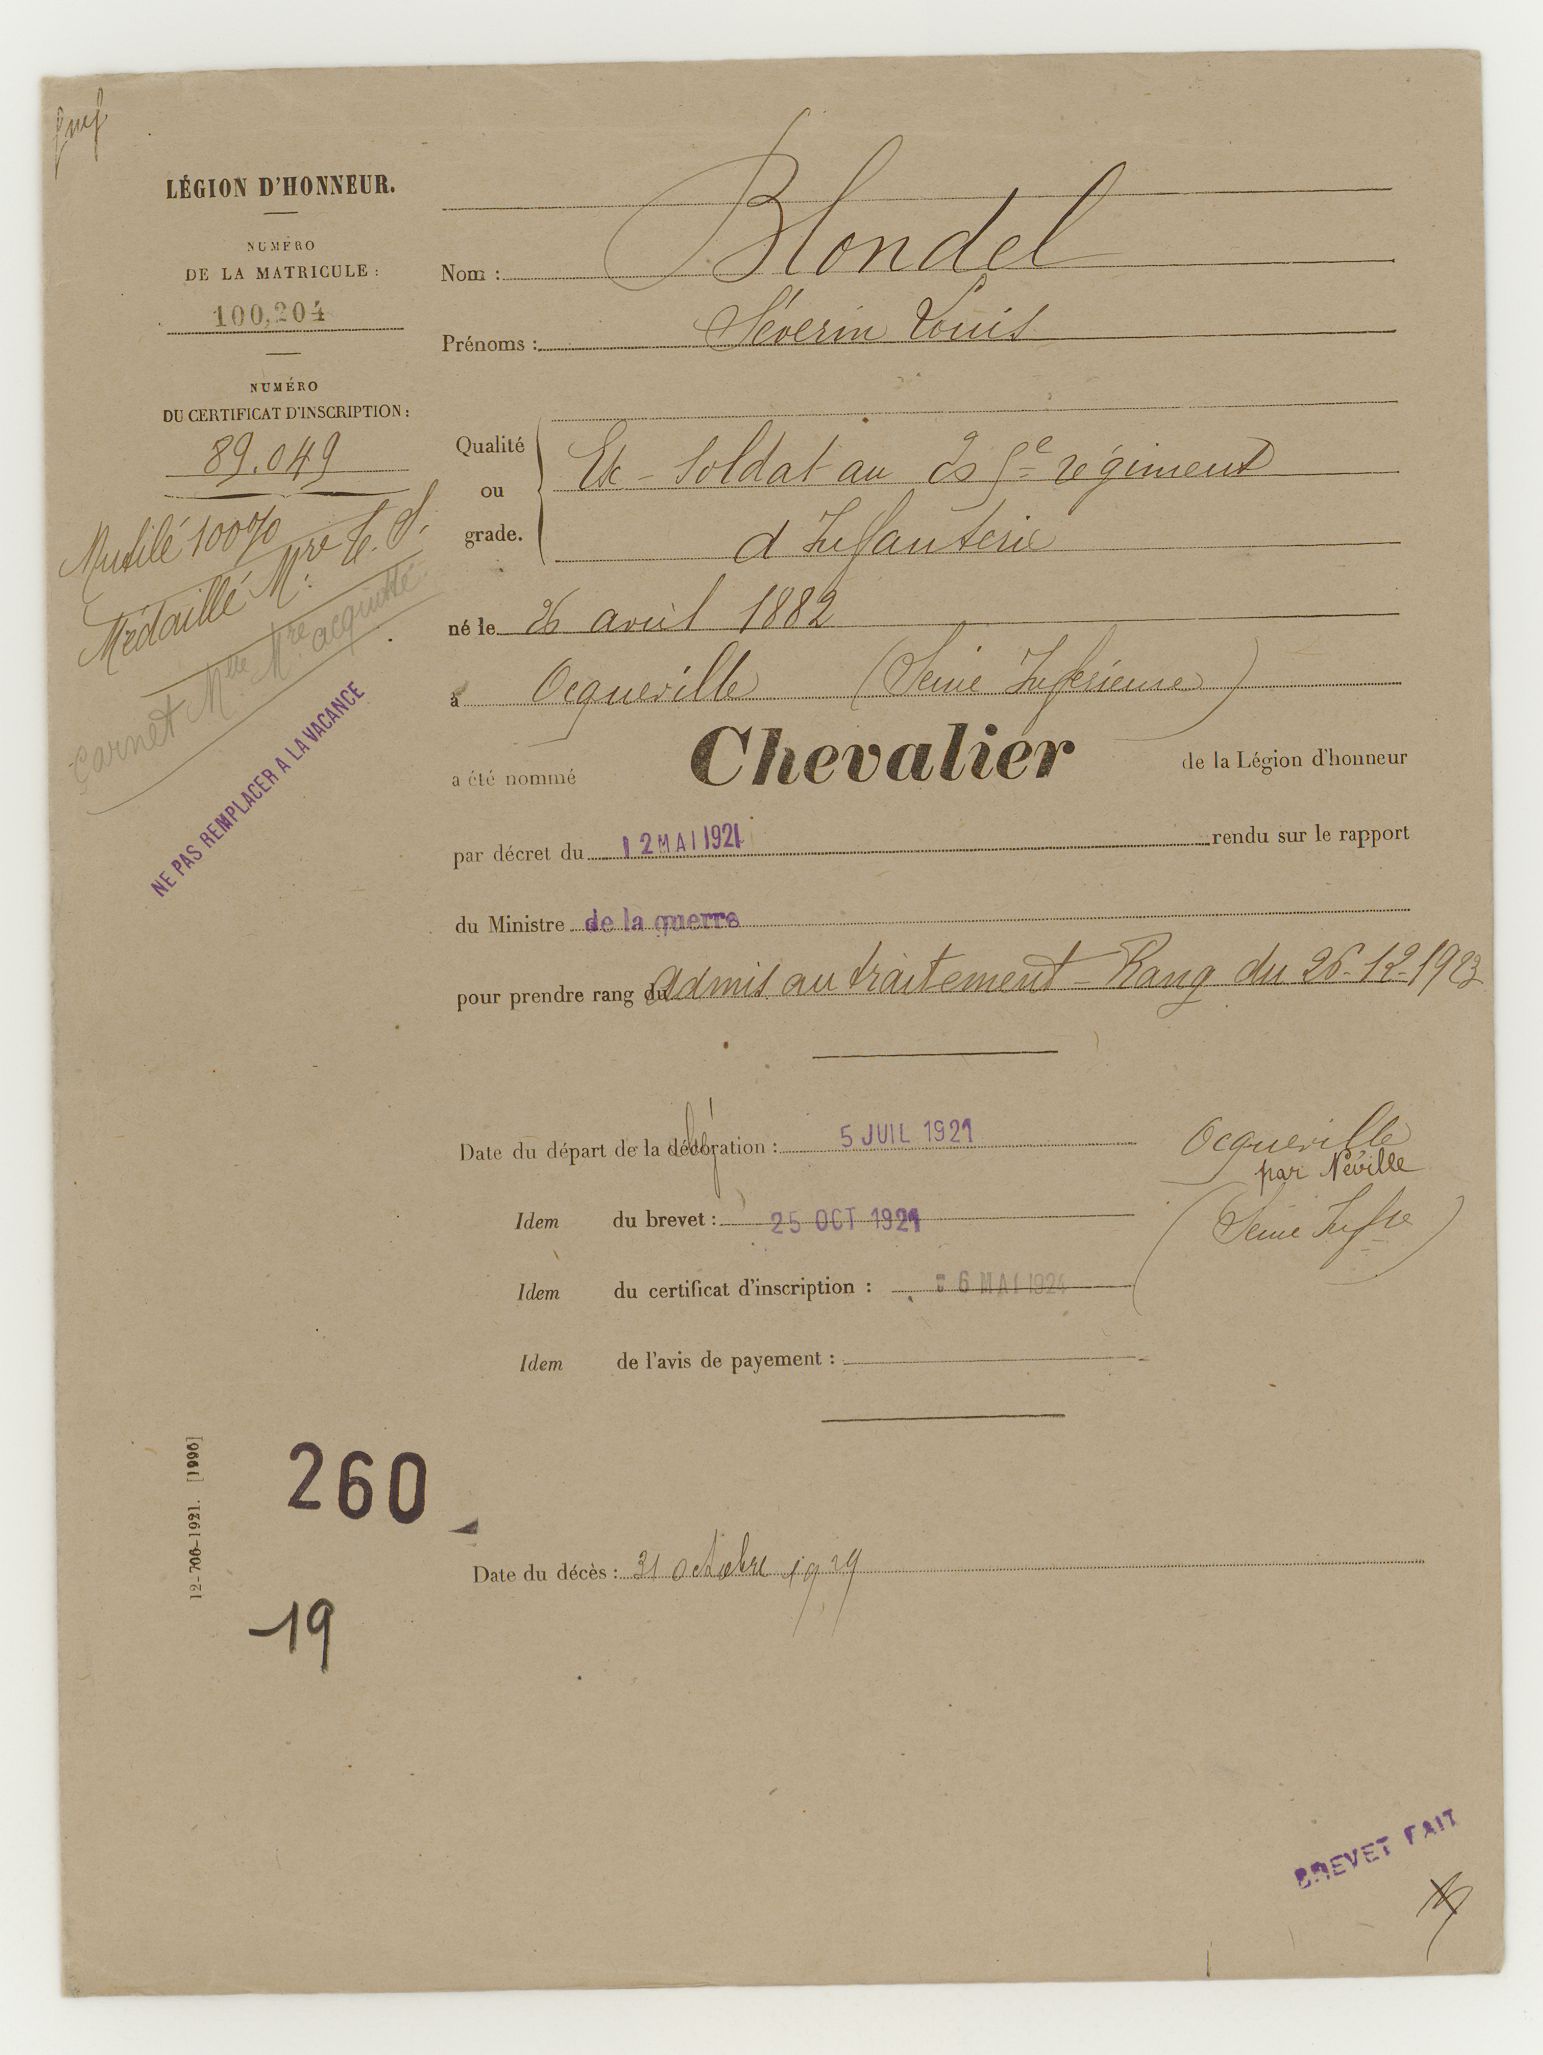 LÉGION D'HONNEUR.
NUMÉRO
DE LA MATRICULE :
100,204
NUMÉRO
DU CERTIFICAT D'INSCRIPTION :
89.049
Mutilé 100%
Médaillé Mre
Carnet Mlle Mre acquitté
NE PAS REMPLACER A LA VACANCE
Nom : Blondel
Prénoms : Séverin Louis
Qualité
ou
grade.
Ex-Soldat au régiment
d'Infanterie
né le 26 avril 1882
à Ocqueville (Seine Inférieure)
a été nommé Chevalier de la Légion d'honneur
par décret du 12 MAI 1921 rendu sur le rapport
du Ministre de la guerre
pour prendre rang du Admis au traitement - Rang du 26-12-1923
Date du départ de la décoration : 5 JUIL 1921
Ocqueville
par Néville
(Seine Infre)
Idem du brevet : 25 OCT 1921
Idem du certificat d'inscription : 6 MAI 1924
Idem de l'avis de payement :
12-706-1921. [1996]
260
19
Date du décès : 31 octobre 1929
BREVET FAIT